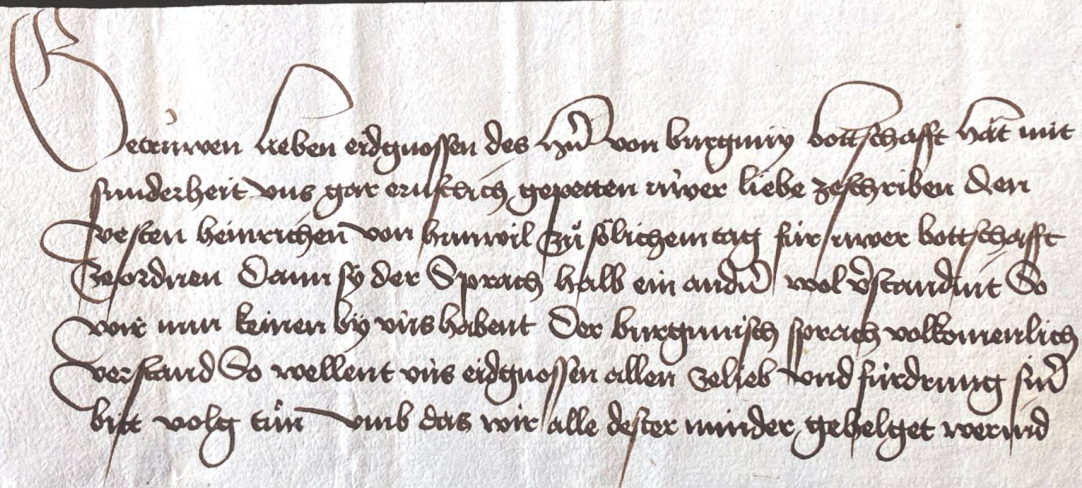 Getrúwen lieben eidgnossen des hr̄ von burguny bottschafft hat mit
sunderheit vns gar ernstlich gepetten úwer liebe ze schriben den
vesten heinrichen von hunwil zů sőlichem tag fúr úwer bottschafft
ze ordnen Dann sy der Sprach halb ein andr̄ wol v̄standint So
wir nun keinen by vns habent Der burgunisch sprach volkomenlich
verstand So wellent vns eidgnossen allen ze lieb vnd fúrdrung sin̄
bitt volg tůn vmb das wir alle dester minder gehelget werind